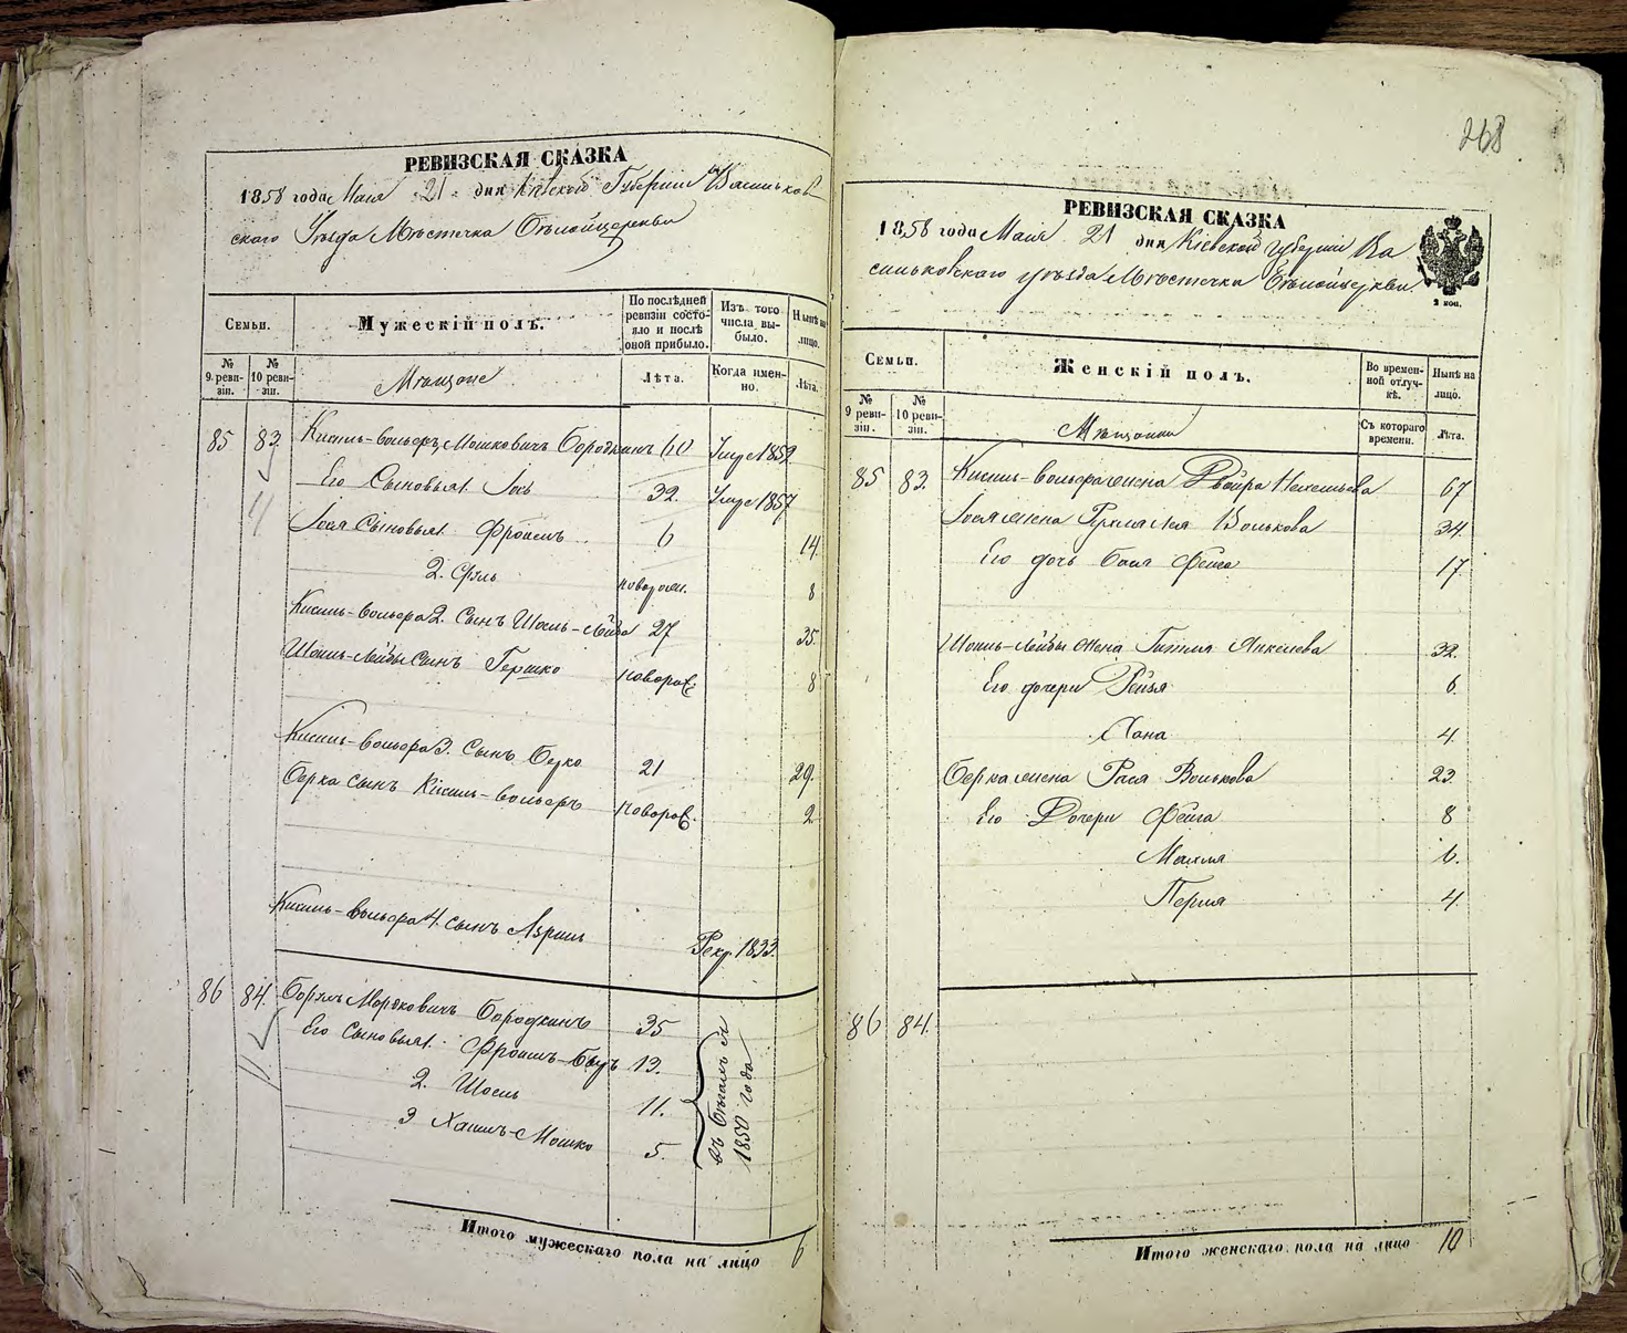 РЕВИЗСКАЯ СКАЗКА
1858 года Мая 21 дня Кіевской Губерніи Васильков
скаго Уѣзда Мѣстечка Бѣлойцеркви
Семьи.
Мужескій полъ.
По послѣдней ревизіи состояло и послѣ оной прибыло.
Изъ того числа выбыло.
Нынѣ на лицо.
№ 9 ревизіи.
№ 10 ревизіи.
Мѣщане
Лѣта.
Когда именно.
Лѣта.
85 83 Кисиль-Вольфъ Мошковичъ Бородкинъ 60 Умре 1852
Его Сыновья 1. Іось 32. Умре 1857
Іося Сыновья 1. Фроимъ 6 14
2. новорож. 8
Кисиль-Вольфа 2. Сынъ Шоель-Лейба 27 35
Шоиль-Лейбы Сынъ Гершко новорож. 8
Кисиль-Вольфа 3. Сынъ Берко 21 29.
Берка сынъ Кисиль-Вольфъ новорож. 2
Кисиль-Вольфа 4. сынъ Аврумъ Рекр. 1833.
86 84. Мордковичъ Бородкинъ 35
Его Сыновья 1. 13.
2. Шоель 11.
3 Хаимъ-Мошко 5.
въ бѣгахъ съ
1850 года
Итого мужескаго пола на лицо 6
268
РЕВИЗСКАЯ СКАЗКА
1858 года Мая 21 дня Кіевской Губерніи Ва
сильковскаго уѣзда Мѣстечка Бѣлойцеркви.
2 коп.
Семьи.
Женскій полъ.
Во временной отлучкѣ.
Нынѣ на лицо.
№ 9 ревизіи.
№ 10 ревизіи.
Мѣщанки
Съ котораго времени.
Лѣта.
85 83. Кисиль-Вольфа жена Двойра 67
Іося жена Волькова 34.
Его дочь Бася Фейга 17
Шоиль-Лейбы жена Гитля Янкелева 32.
Его дочери Рейзя 6.
Хана 4.
Берка жена Рася Волькова 23.
Его Дочери Фейга 8
Малка 6.
Перля 4.
86 84.
Итого женскаго пола на лицо 10